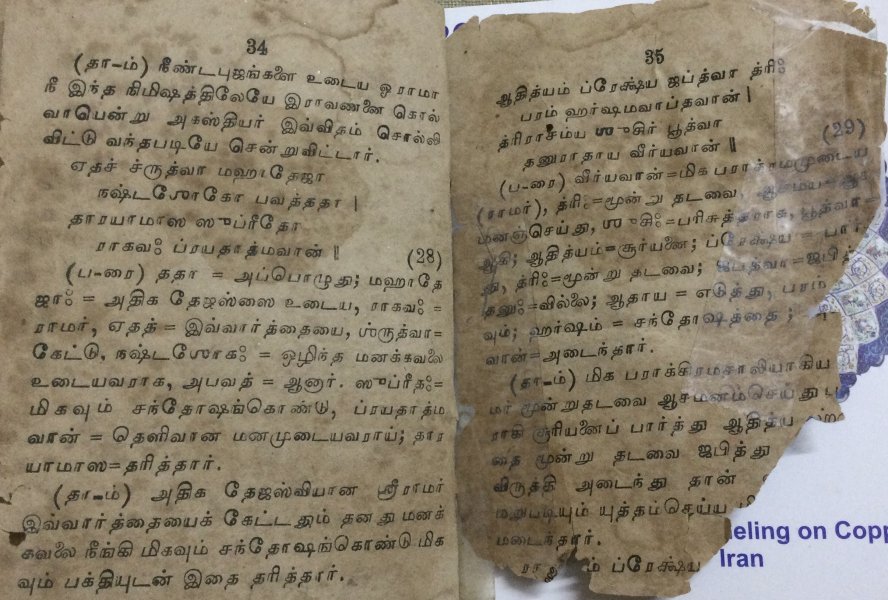 34
(தா-ம்) நீண்டபுஜங்களை உடைய ஓ ராமா
நீ இந்த நிமிஷத்திலேயே இராவணனை கொல்
வாயென்று அகஸ்தியர் இவ்விதம் சொல்லி
விட்டு வந்தபடியே சென்றுவிட்டார்.
ஏதச் ச்ருத்வா மஹாதேஜா
நஷ்டஶோகோ பவத்ததா |
தாரயாமாஸ ஸுப்ரீதோ
ராகவஃ ப்ரயதாத்மவான் ‖ (28)
(ப-ரை) ததா = அப்பொழுது; மஹாதே
ஜாஃ = அதிக தேஜஸ்ஸை உடைய, ராகவஃ =
ராமர், ஏதத் = இவ்வார்த்தையை, ஶ்ருத்வா=
கேட்டு, நஷ்டஶோகஃ = ஒழிந்த மனக்கவலை
உடையவராக, அபவத் = ஆனார். ஸுப்ரீதஃ=
மிகவும் சந்தோஷங்கொண்டு, ப்ரயதாத்ம
வான் = தெளிவான மனமுடையவராய்; தார
யாமாஸ=தரித்தார்.
(தா-ம்) அதிக தேஜஸ்வியான ஸ்ரீராமர்
இவ்வார்த்தையைக் கேட்டதும் தனது மனக்
கவலை நீங்கி மிகவும் சந்தோஷங்கொண்டு மிக
வும் பக்தியுடன் இதை தரித்தார்.
35
ஆதித்யம் ப்ரேக்ஷ்ய ஜப்த்வா த்ரிஃ
பரம் ஹர்ஷமவாப்தவான் |
த்ரிராசம்ய ஶுசிர் பூத்வா
தனுராதாய வீர்யவான் ‖ (29)
(ப-ரை) வீர்யவான்=மிக பராக்ரமமுடைய
(ராமர்), த்ரிஃ=மூன்று தடவை, ஆசம்ய=ஆச
மனஞ்செய்து, ஶுசிஃ=பரிசுத்தராக, பூத்வா=
ஆகி; ஆதித்யம்=சூர்யனை; ப்ரேக்ஷ்ய = பார்
து, த்ரிஃ=மூன்று தடவை; ஜப்த்வா=ஜபித்
தனுஃ=வில்லை; ஆதாய = எடுத்து, பரம்
வும்; ஹர்ஷம் = சந்தோஷத்தை;
வான்=அடைந்தார்.
(தா-ம்) மிக பராக்கிரமசாலியாகிய
மர் மூன்றுதடவை ஆசமனம்செய்து
ராகி சூரியனைப் பார்த்து ஆதித்ய
தை மூன்று தடவை ஜபித்து
விருத்தி அடைந்து தான்
மறுபடியும் யுத்தம்செய்ய
மடைந்தார்.
ப்ரேக்ஷ்ய
neling on Copp
Iran